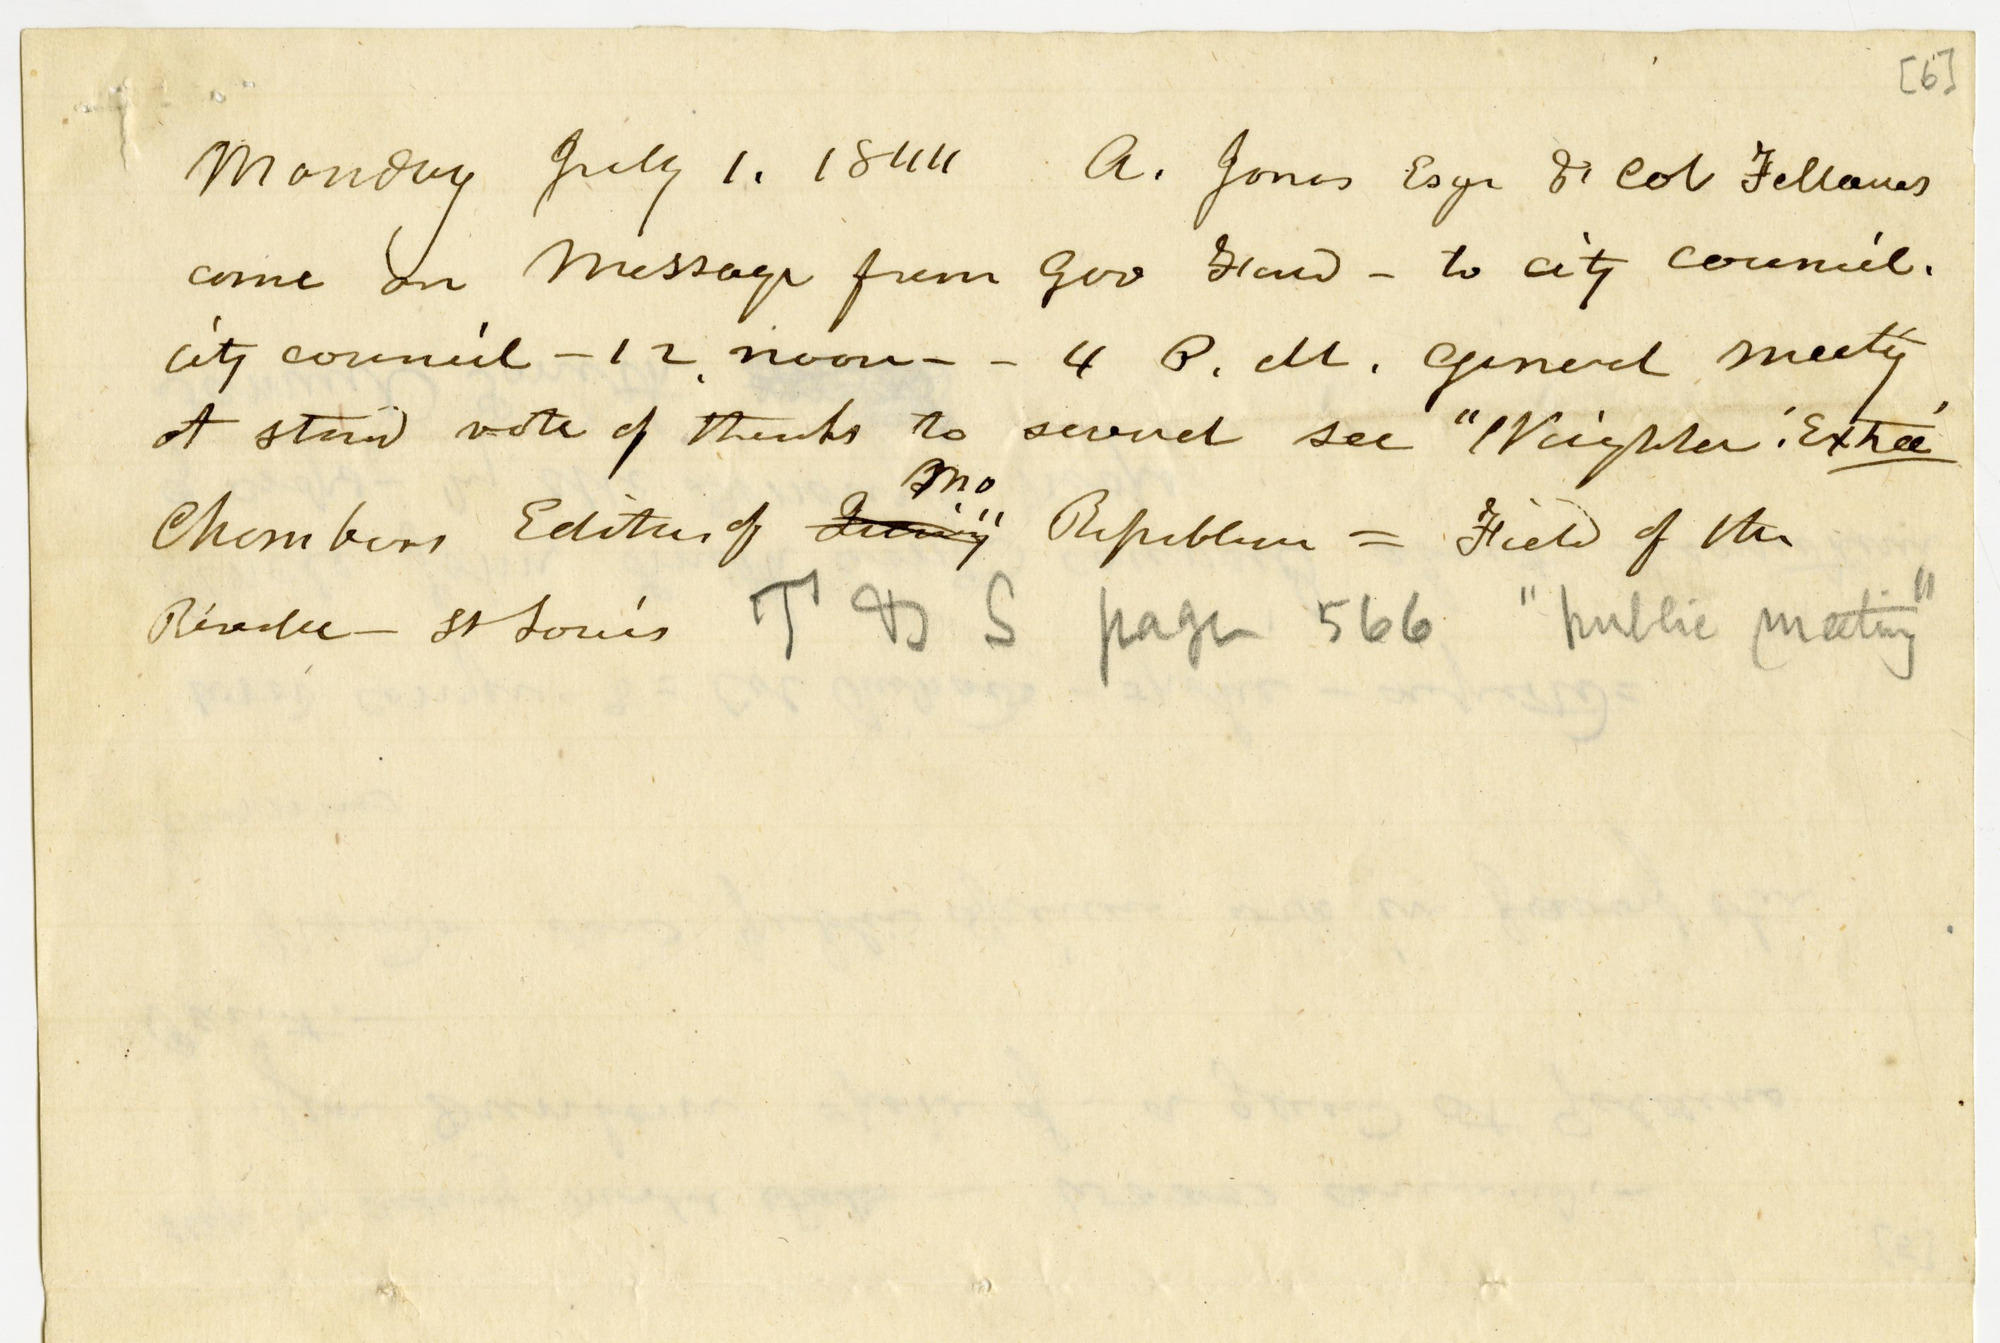 [6]
Monday July 1. 1844 A. Jones Esqr & Col Fellows
come on Message from Gov Ford - to city council.
city council - 12 noon - - 4 P. M. general meetg
at stand vote of thanks to several see "Neighbor" Extra
Chambers Editor of Mo Republican = Field of the
Reveillee - St Louis T & S page 566 "public meeting"